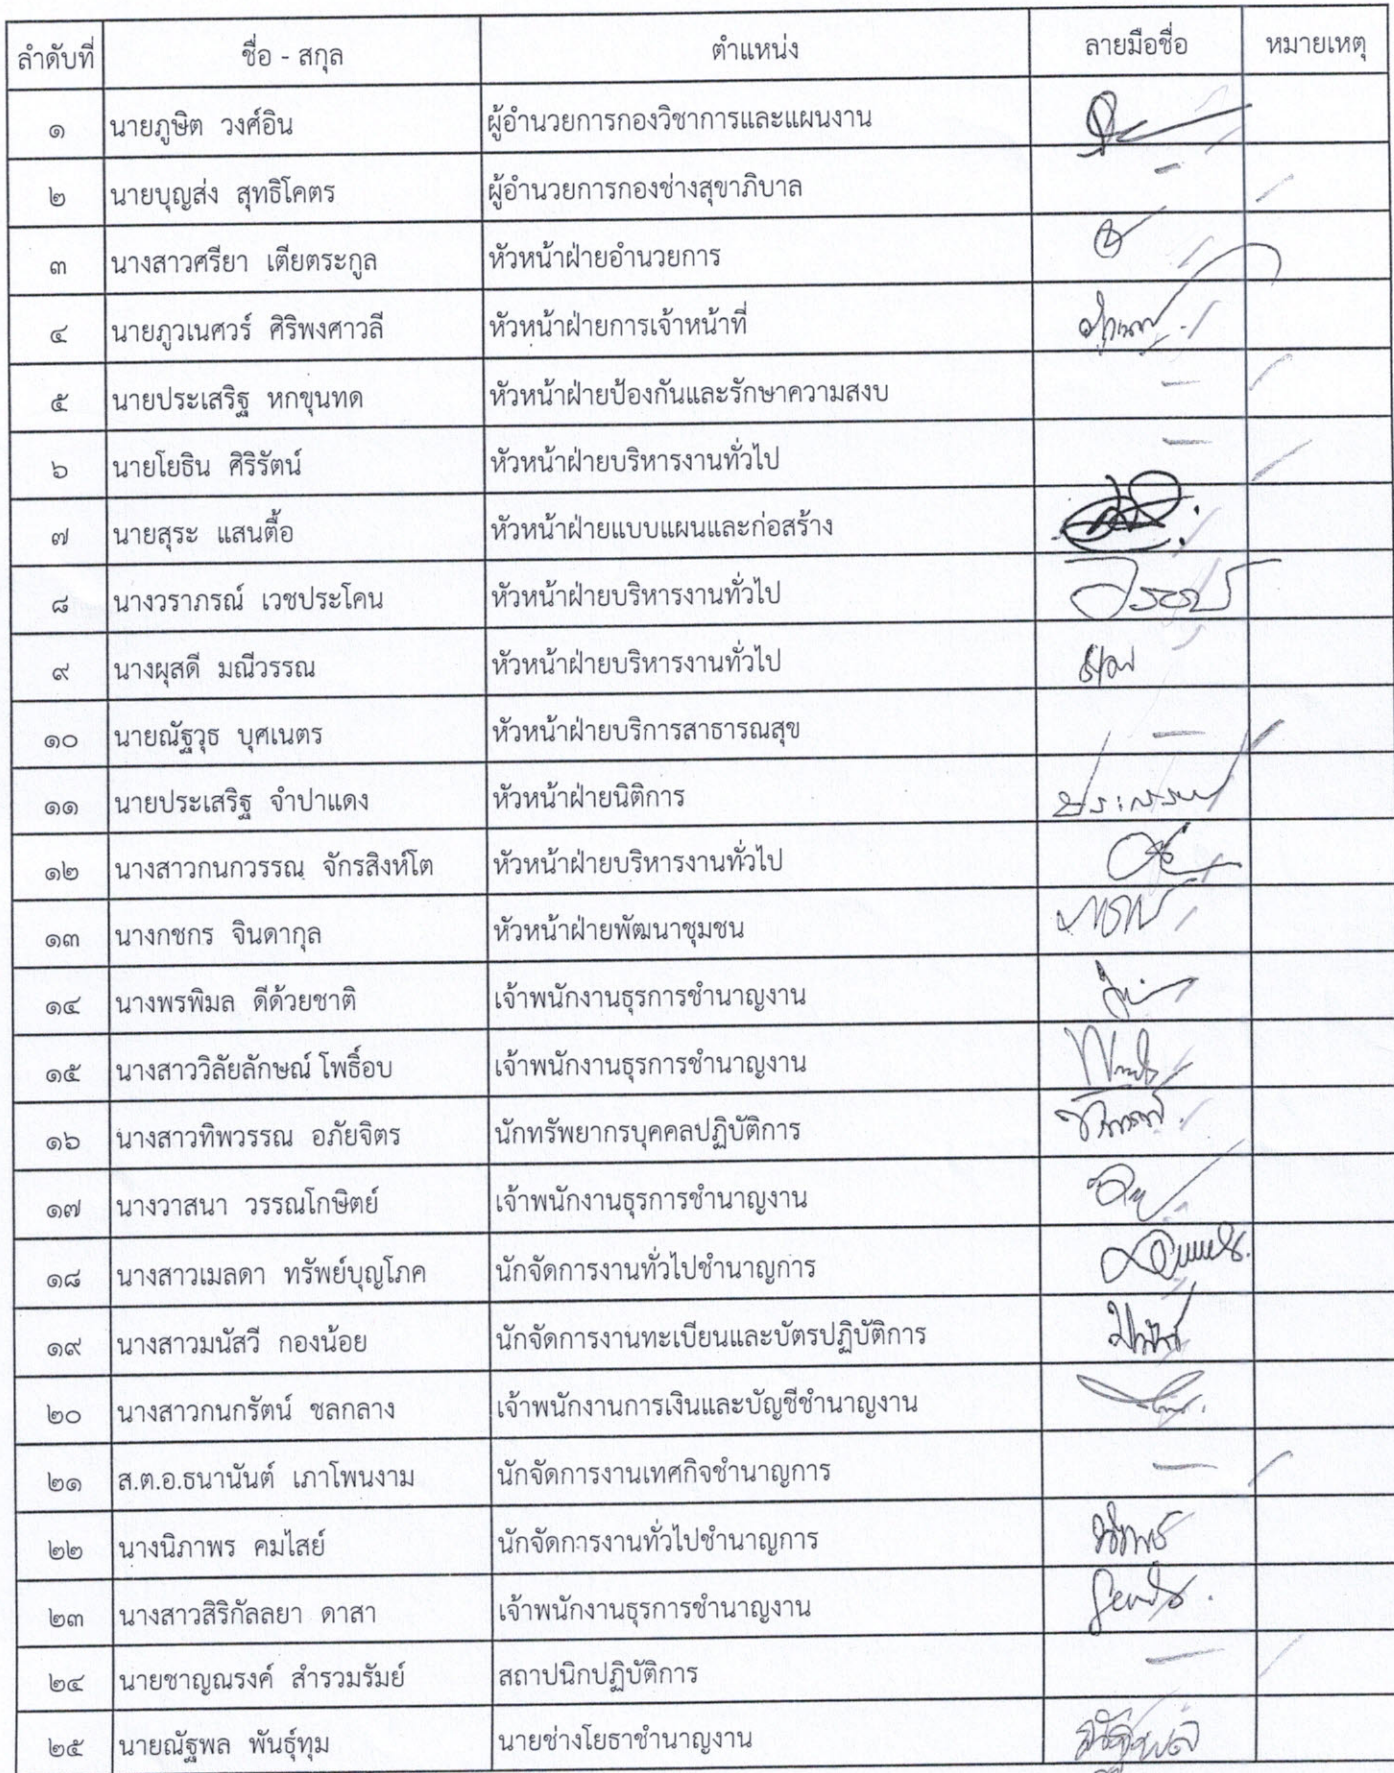 ลำดับที่ ชื่อ - สกุล ตำแหน่ง ลายมือชื่อ หมายเหตุ
๑ นายภูษิต วงศ์อิน ผู้อำนวยการกองวิชาการและแผนงาน
๒ นายบุญส่ง สุทธิโคตร ผู้อำนวยการกองช่างสุขาภิบาล -
๓ นางสาวศรียา เตียตระกูล หัวหน้าฝ่ายอำนวยการ
๔ นายภูวเนศวร์ ศิริพงศาวลี หัวหน้าฝ่ายการเจ้าหน้าที่
๕ นายประเสริฐ หกขุนทด หัวหน้าฝ่ายป้องกันและรักษาความสงบ -
๖ นายโยธิน ศิริรัตน์ หัวหน้าฝ่ายบริหารงานทั่วไป -
๗ นายสุระ แสนตื้อ หัวหน้าฝ่ายแบบแผนและก่อสร้าง
๘ นางวราภรณ์ เวชประโคน หัวหน้าฝ่ายบริหารงานทั่วไป
๙ นางผุสดี มณีวรรณ หัวหน้าฝ่ายบริหารงานทั่วไป
๑๐ นายณัฐวุธ บุศเนตร หัวหน้าฝ่ายบริการสาธารณสุข -
๑๑ นายประเสริฐ จำปาแดง หัวหน้าฝ่ายนิติการ
๑๒ นางสาวกนกวรรณ จักรสิงห์โต หัวหน้าฝ่ายบริหารงานทั่วไป
๑๓ นางกชกร จินดากุล หัวหน้าฝ่ายพัฒนาชุมชน
๑๔ นางพรพิมล ดีด้วยชาติ เจ้าพนักงานธุรการชำนาญงาน
๑๕ นางสาววิลัยลักษณ์ โพธิ์อบ เจ้าพนักงานธุรการชำนาญงาน
๑๖ นางสาวทิพวรรณ อภัยจิตร นักทรัพยากรบุคคลปฏิบัติการ
๑๗ นางวาสนา วรรณโกษิตย์ เจ้าพนักงานธุรการชำนาญงาน
๑๘ นางสาวเมลดา ทรัพย์บุญโภค นักจัดการงานทั่วไปชำนาญการ
๑๙ นางสาวมนัสวี กองน้อย นักจัดการงานทะเบียนและบัตรปฏิบัติการ
๒๐ นางสาวกนกรัตน์ ชลกลาง เจ้าพนักงานการเงินและบัญชีชำนาญงาน
๒๑ ส.ต.อ.ธนานันต์ เภาโพนงาม นักจัดการงานเทศกิจชำนาญการ -
๒๒ นางนิภาพร คมไสย์ นักจัดการงานทั่วไปชำนาญการ
๒๓ นางสาวสิริกัลลยา ดาสา เจ้าพนักงานธุรการชำนาญงาน
๒๔ นายชาญณรงค์ สำรวมรัมย์ สถาปนิกปฏิบัติการ -
๒๕ นายณัฐพล พันธุ์ทุม นายช่างโยธาชำนาญงาน ณัฐพล